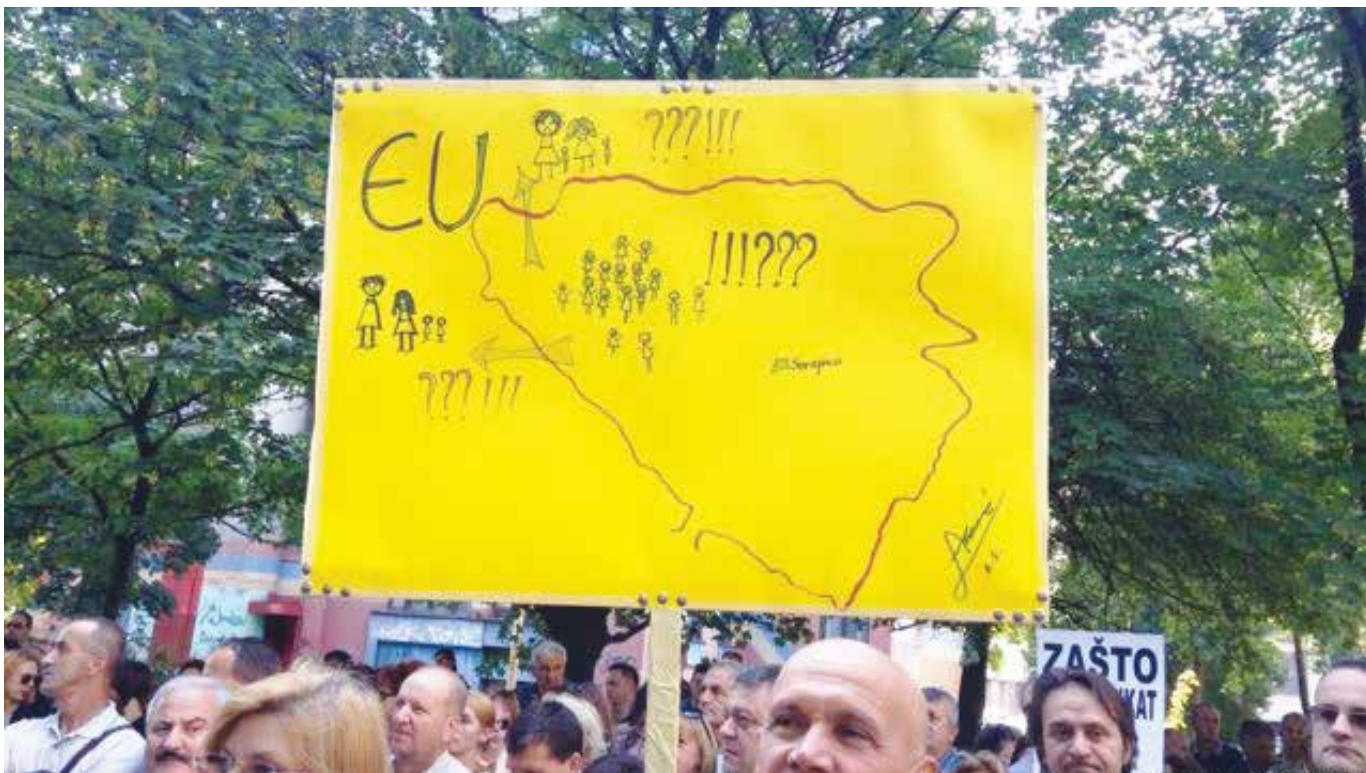 EU
???!!!
!!!???
Sarajevo
???!!!
ZAŠTO